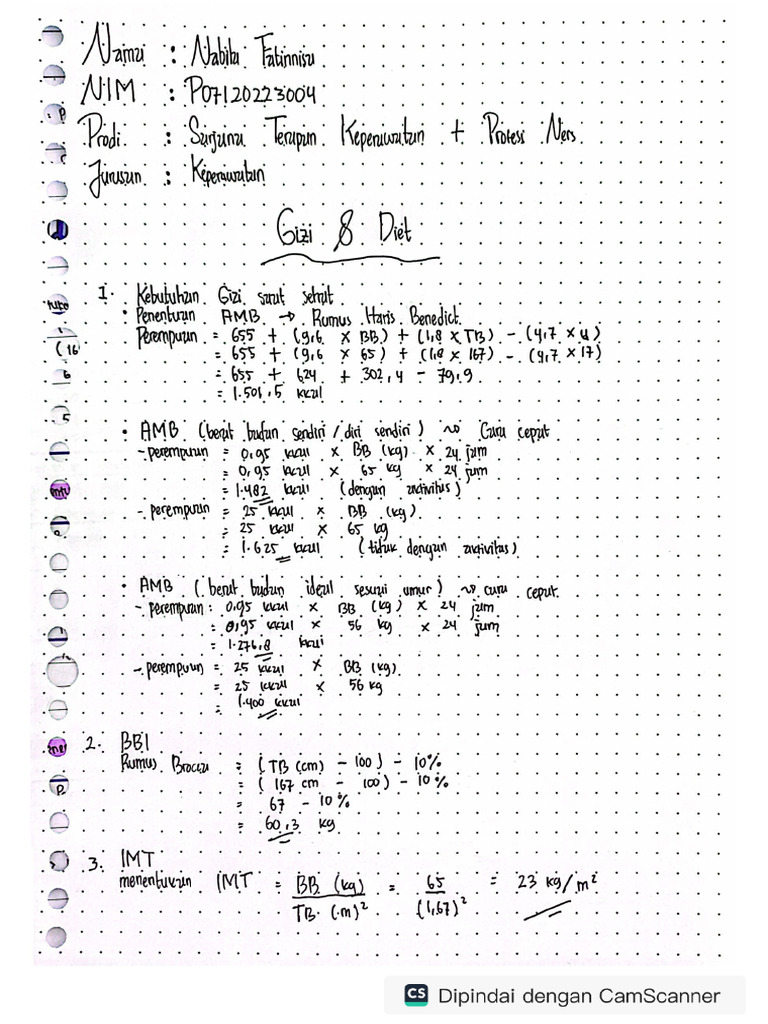 Nama : Nabila Fatinnisa
NIM : P07120223004
Prodi : Sarjana Terapan Keperawatan + Profesi Ners
Jurusan : Keperawatan
Gizi & Diet
1. Kebutuhan Gizi saat sehat
• Penentuan AMB → Rumus Haris Benedict
Perempuan = 655 + (9,6 x BB) + (1,8 x TB) - (4,7 x U)
= 655 + (9,6 x 65) + (1,8 x 167) - (4,7 x 17)
= 655 + 624 + 302,4 - 79,9
= 1.501,5 kkal
• AMB (berat badan sendiri / diri sendiri) ~> Cara cepat
- perempuan = 0,95 kkal x BB (kg) x 24 jam
= 0,95 kkal x 65 kg x 24 jam
= 1.482 kkal (dengan aktivitas)
- perempuan = 25 kkal x BB (kg)
= 25 kkal x 65 kg
= 1.625 kkal (tidak dengan aktivitas)
• AMB (berat badan ideal sesuai umur) ~> cara cepat
- perempuan : 0,95 kkal x BB (kg) x 24 jam
= 0,95 kkal x 56 kg x 24 jam
= 1.276,8 kkal
- perempuan = 25 kkal x BB (kg)
= 25 kkal x 56 kg
= 1.400 kkal
2. BBI
Rumus Brocca = (TB (cm) - 100) - 10%
= (167 cm - 100) - 10%
= 67 - 10%
= 60,3 kg
3. IMT
menentukan IMT = BB (kg) / TB (m)² = 65 / (1,67)² = 23 kg/m²
CS Dipindai dengan CamScanner